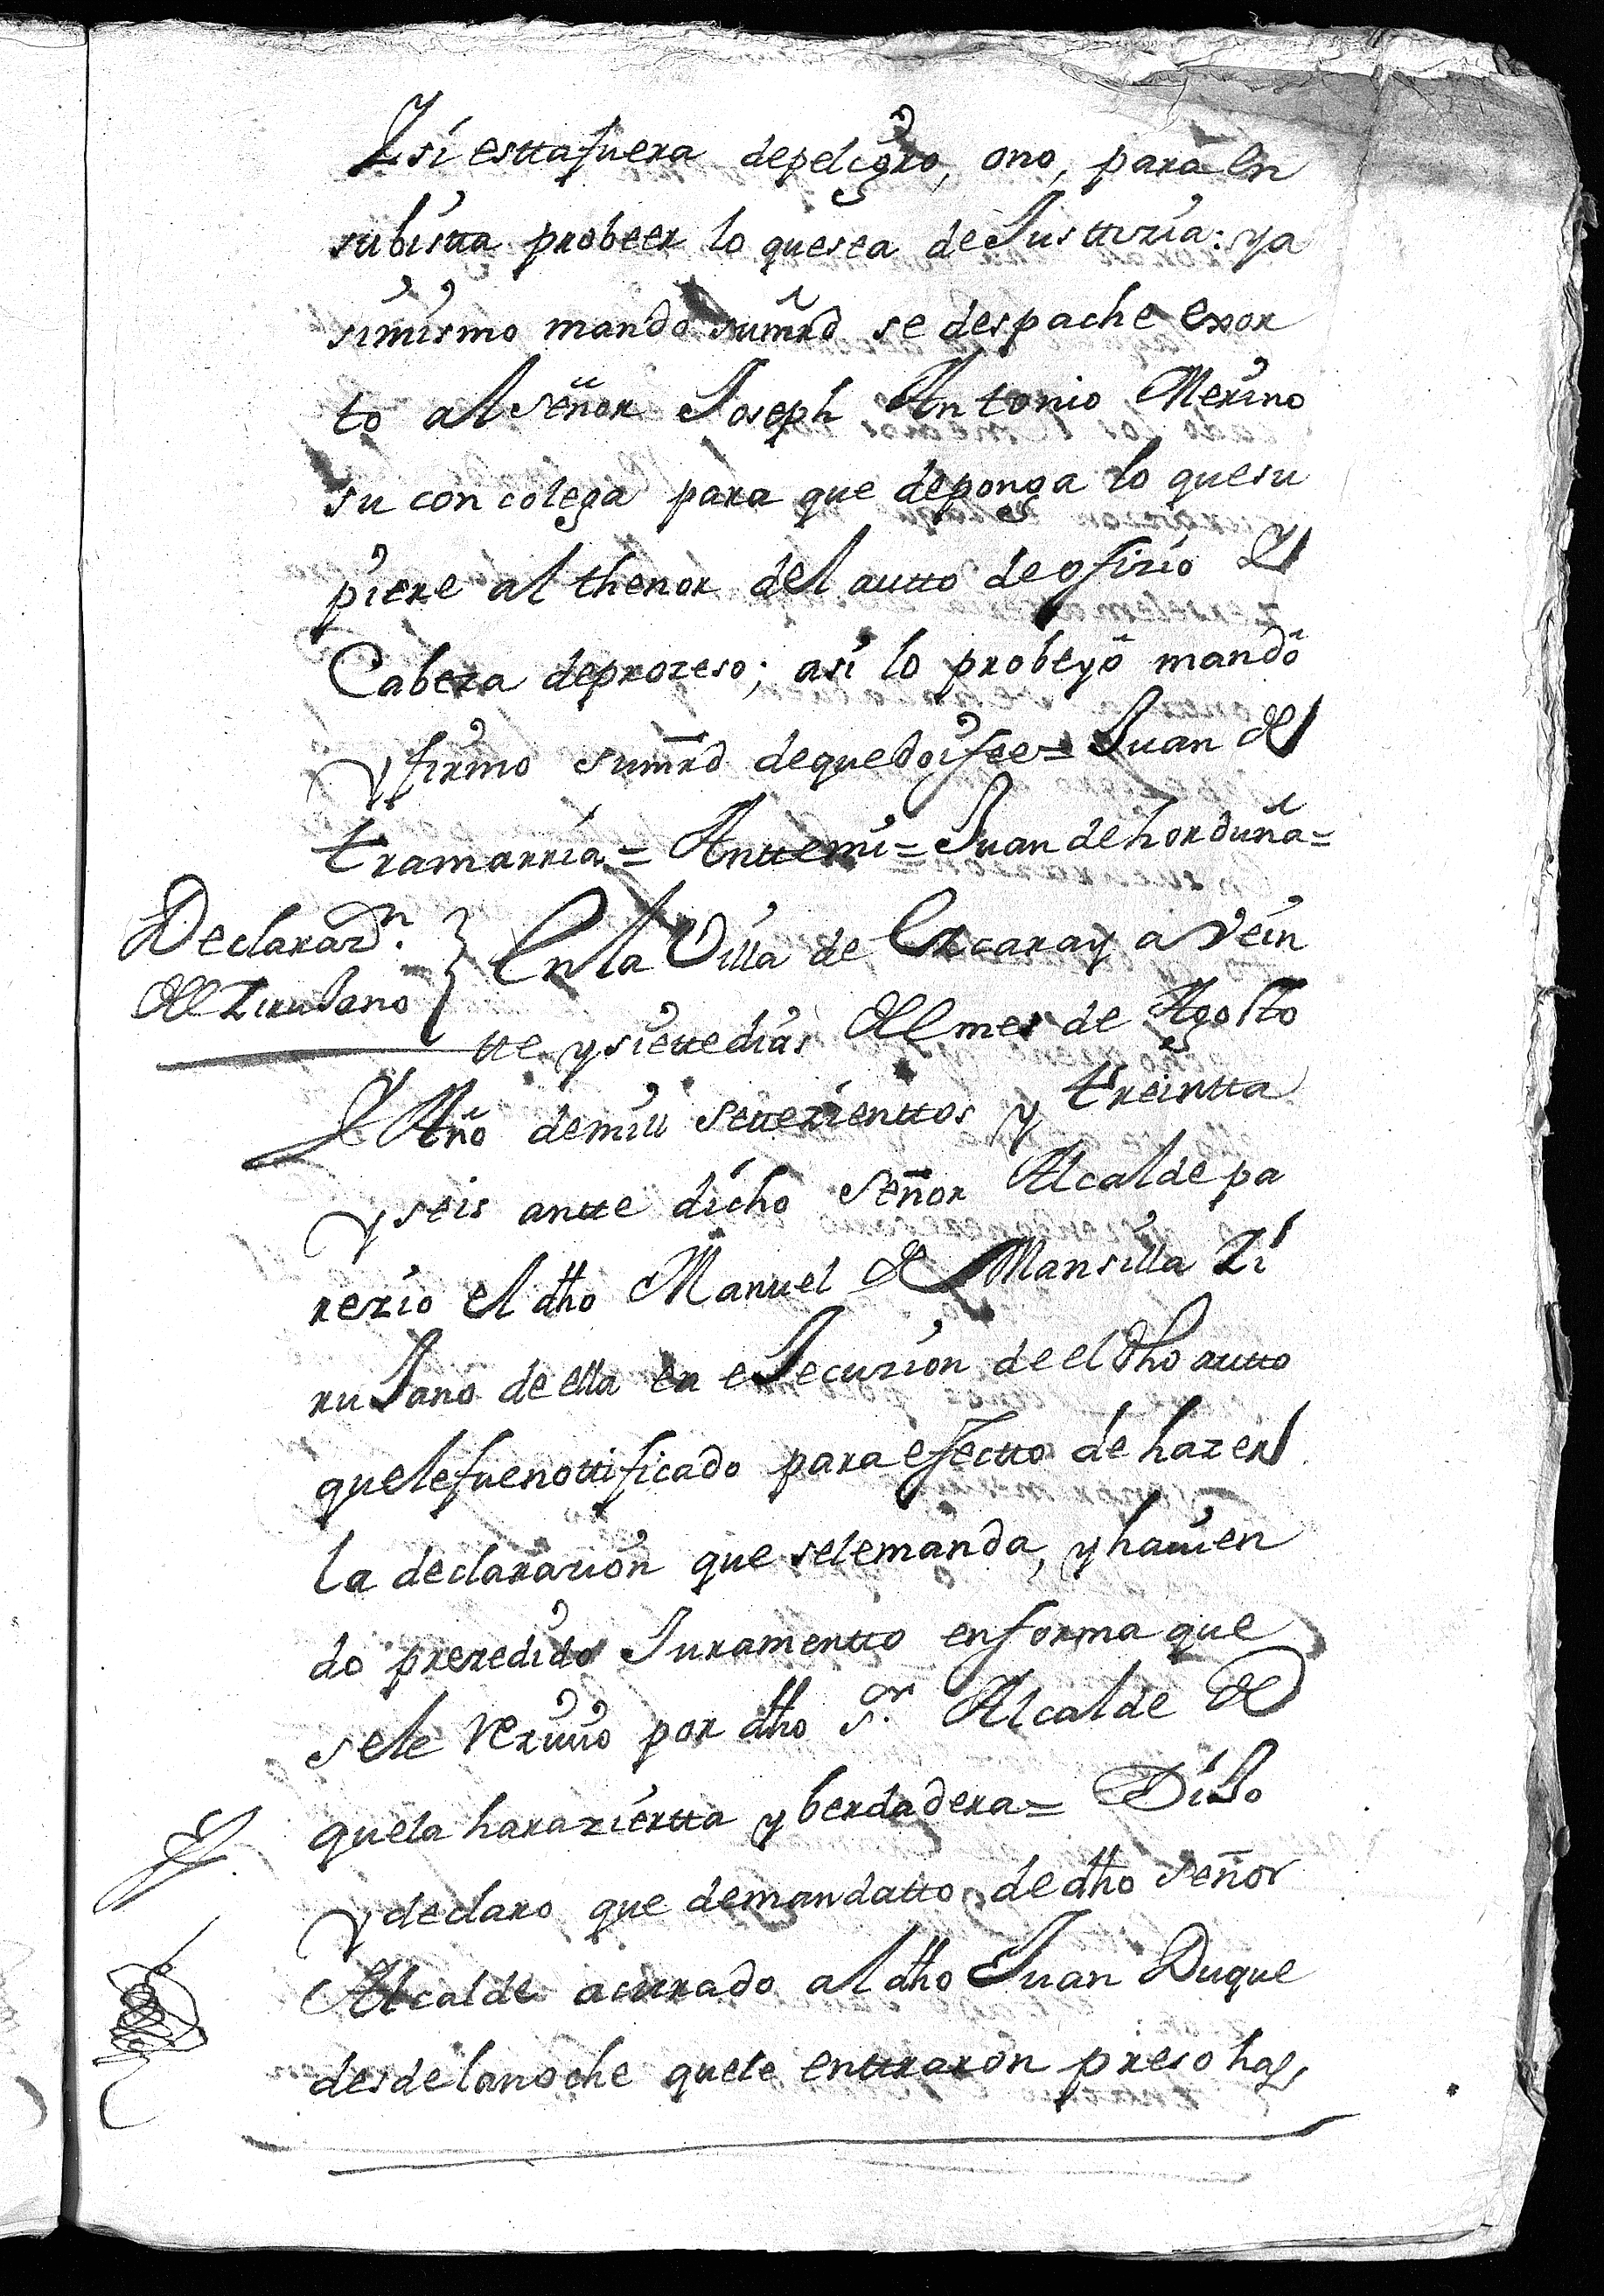 Y si estta fuera de peligro, o no, para en
su bistta probeer lo que sea de Justtizia: y a
simismo mando su mrd se despache exor
to al señor Joseph Antonio Merino
su con colega para que deponga lo que su
piere al thenor del autto de ofizio y
Cabeza de prozeso; asi lo probeyo mando
y firmo su mrd de que doi fee = Juan de
tramarria = Antte mi = Juan de horduña =
Declarazn.
del Zirujano
En la Villa de Ezcaray a vein
tte y siette dias del mes de Agosto
Año de mill settezienttos y treintta
y seis antte dicho señor Alcalde pa
rezio el dho Manuel de Mansilla Zi
rujano de ella en ejecuzion de el dho autto
que le fue nottificado para efectto de hazer
la declarazion que se le manda, y hauien
do prezedido Juramentto en forma que
se le rezivio por dho sor. Alcalde de
que la hara ziertta y berdadera = Dijo
y declaro que de mandatto de dho señor
Alcalde a curado al dho Juan Duque
desde la noche que le enttraron preso has